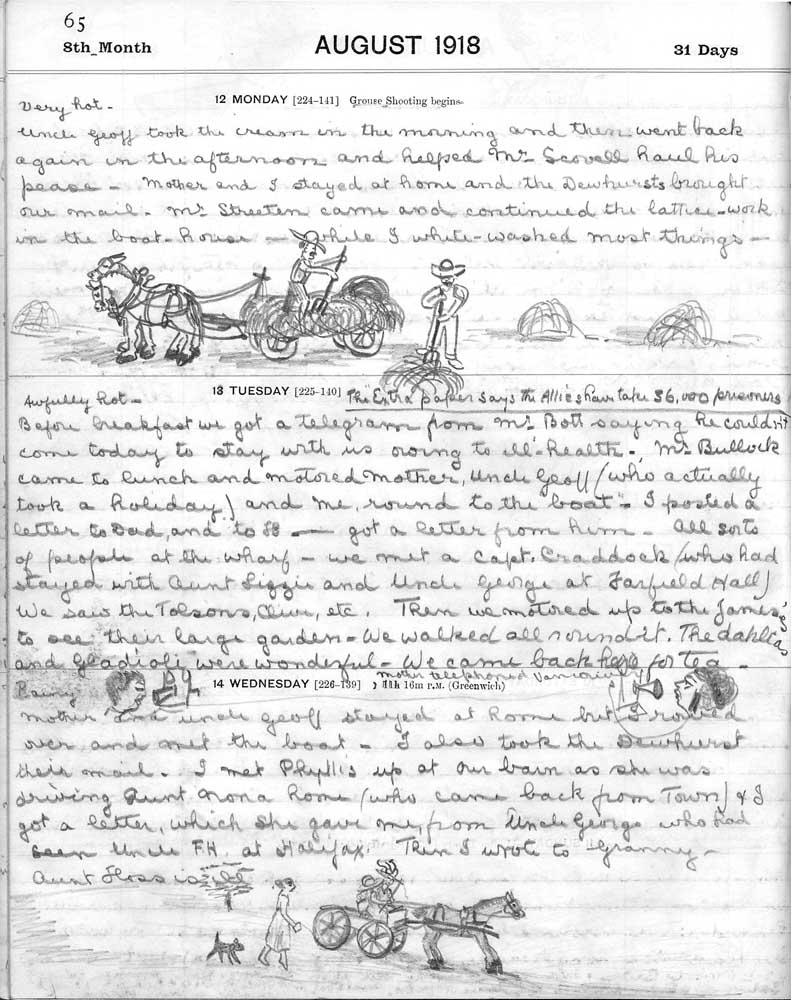 65
8th Month
AUGUST 1918
31 Days
12 MONDAY [224-141] Grouse Shooting begins
Very hot -
Uncle Geoff took the cream in the morning and then went back
again in the afternoon and helped Mr Scovell haul his
pease - Mother and I stayed at home and the Dewhursts brought
our mail. Mr Streeten came and continued the lattice-work
in the boat-house - while I white-washed most things -
13 TUESDAY [225-140] The "Extra" paper says the Allies have take 36,000 prisoners
Awfully hot -
Before breakfast we got a telegram from Mr Bott saying he couldn't
come today to stay with us owing to ill-health. Mr Bullock
came to lunch and motored Mother, Uncle Geoff (who actually
took a holiday!) and me, round to the boat - I posted a
letter to Dad, and to - got a letter from him - All sorts
of people at the wharf - we met a Capt. Craddock (who had
stayed with Aunt Lizzie and Uncle George at Farfield Hall)
We saw the Tolsons, Clive, etc. Then we motored up to the James's
to see their large garden - We walked all round it. The dahlias
and Gladioli were wonderful - We came back here for tea -
14 WEDNESDAY [226-139] Mother telephoned Vancouver
11h 16m P.M. (Greenwich)
Rainy
Mother and uncle Geoff stayed at home but I rowed
over and met the boat - I also took the Dewhurst
their mail. I met Phyllis up at our barn as she was
driving Aunt Nona home (who came back from Town) & I
got a letter, which she gave me, from Uncle George who had
seen Uncle F.H. at Halifax. Then I wrote to Granny -
Aunt Floss is